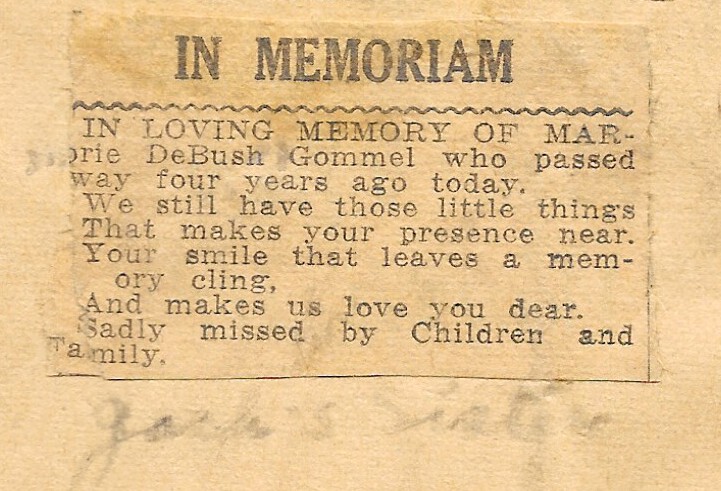 IN MEMORIAM
IN LOVING MEMORY OF MAR-
orie DeBush Gommel who passed
way four years ago today.
We still have those little things
That makes your presence near.
Your smile that leaves a mem-
ory cling,
And makes us love you dear.
Sadly missed by Children and
Family.
Jack's Sister